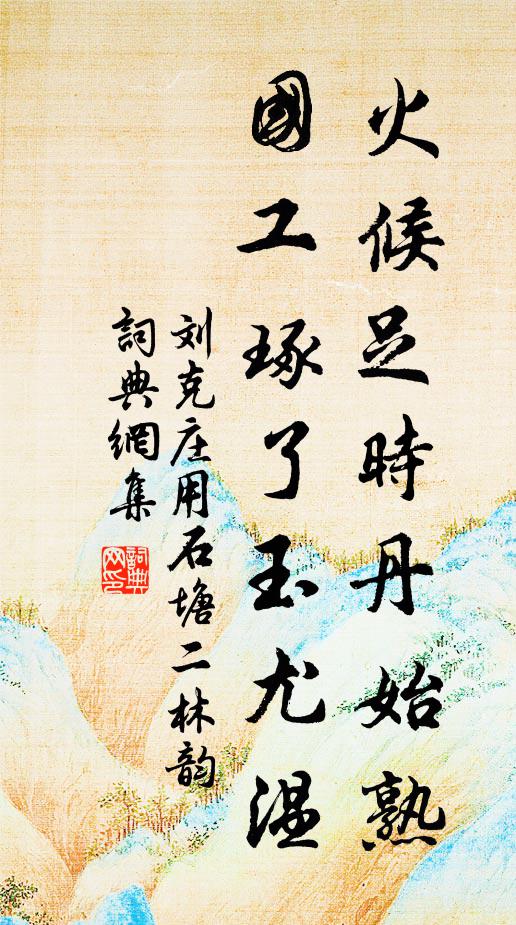 火候足時丹始熟
國工琢了玉尤溫
刘克庄用石塘二林韵
詞典網集
詞典網印